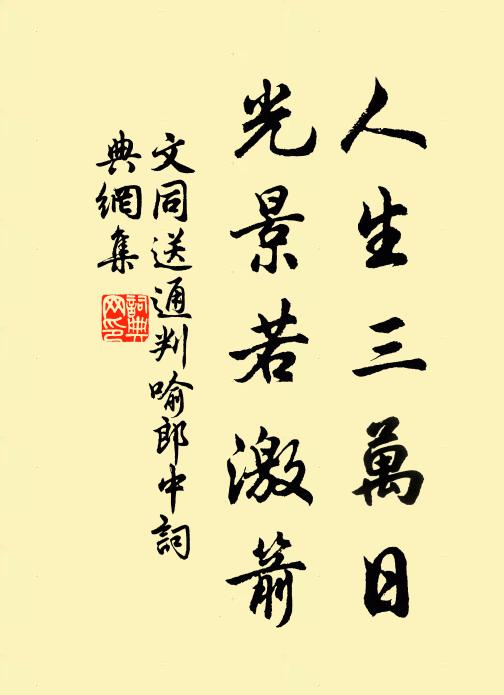 人生三萬日
光景若激箭
文同送通判喻郎中詞
典網集
詞典
网印